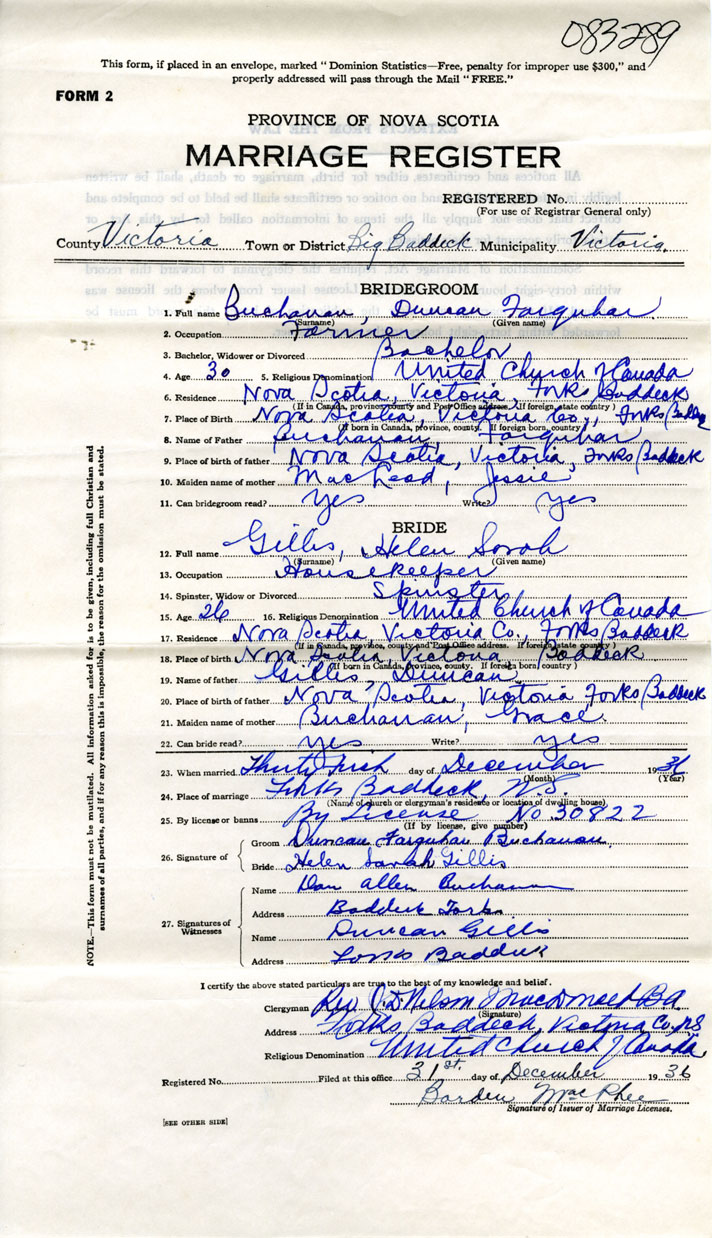 083289
This form, if placed in an envelope, marked "Dominion Statistics—Free, penalty for improper use $300," and
properly addressed will pass through the Mail "FREE."
FORM 2
PROVINCE OF NOVA SCOTIA
MARRIAGE REGISTER
REGISTERED No.
(For use of Registrar General only)
County Victoria Town or District Big Baddeck Municipality Victoria.
BRIDEGROOM
1. Full name Buchanan, Duncan Farquhar
(Surname) (Given name)
2. Occupation Farmer
3. Bachelor, Widower or Divorced Bachelor
4. Age 30 5. Religious Denomination United Church of Canada
6. Residence Nova Scotia, Victoria, Forks Baddeck
(If in Canada, province, county and Post Office address. If foreign, state country)
7. Place of Birth Nova Scotia, Victoria Co., Forks Baddeck
(If born in Canada, province, county. If foreign born, country)
8. Name of Father Buchanan, Farquhar
9. Place of birth of father Nova Scotia, Victoria, Forks Baddeck
10. Maiden name of mother MacLeod, Jessie
11. Can bridegroom read? Yes Write? yes
BRIDE
12. Full name Gillis, Helen Sarah
(Surname) (Given name)
13. Occupation Housekeeper
14. Spinster, Widow or Divorced Spinster
15. Age 26 16. Religious Denomination United Church of Canada
17. Residence Nova Scotia, Victoria Co., Forks Baddeck
(If in Canada, province, county and Post Office address. If foreign state country)
18. Place of birth Nova Scotia, Victoria, Baddeck
(If born in Canada, province, county. If foreign born, country)
19. Name of father Gillis, Duncan
20. Place of birth of father Nova Scotia, Victoria Forks Baddeck
21. Maiden name of mother Buchanan, Grace
22. Can bride read? yes Write? yes
23. When married day of December 1936
(Month) (Year)
24. Place of marriage Forks Baddeck, N.S.
(Name of church or clergyman's residence or location of dwelling house)
25. By license or banns By License No 30822
(If by license, give number)
26. Signature of
Groom Duncan Farquhar Buchanan
Bride Helen Sarah Gillis
27. Signatures of Witnesses
Name Dan Allen Buchanan
Address Baddeck Forks
Name Duncan Gillis
Address Forks Baddeck
I certify the above stated particulars are true to the best of my knowledge and belief.
Clergyman Rev. Nelson MacDonald BA
(Signature)
Address Forks Baddeck, Victoria Co. N.S
Religious Denomination United Church of Canada
Registered No. Filed at this office 31st. day of December 1936
MacPhee
Signature of Issuer of Marriage Licenses.
[SEE OTHER SIDE]
NOTE.—This form must not be mutilated. All information asked for is to be given, including full Christian and
surnames of all parties, and if for any reason this is impossible, the reason for the omission must be stated.